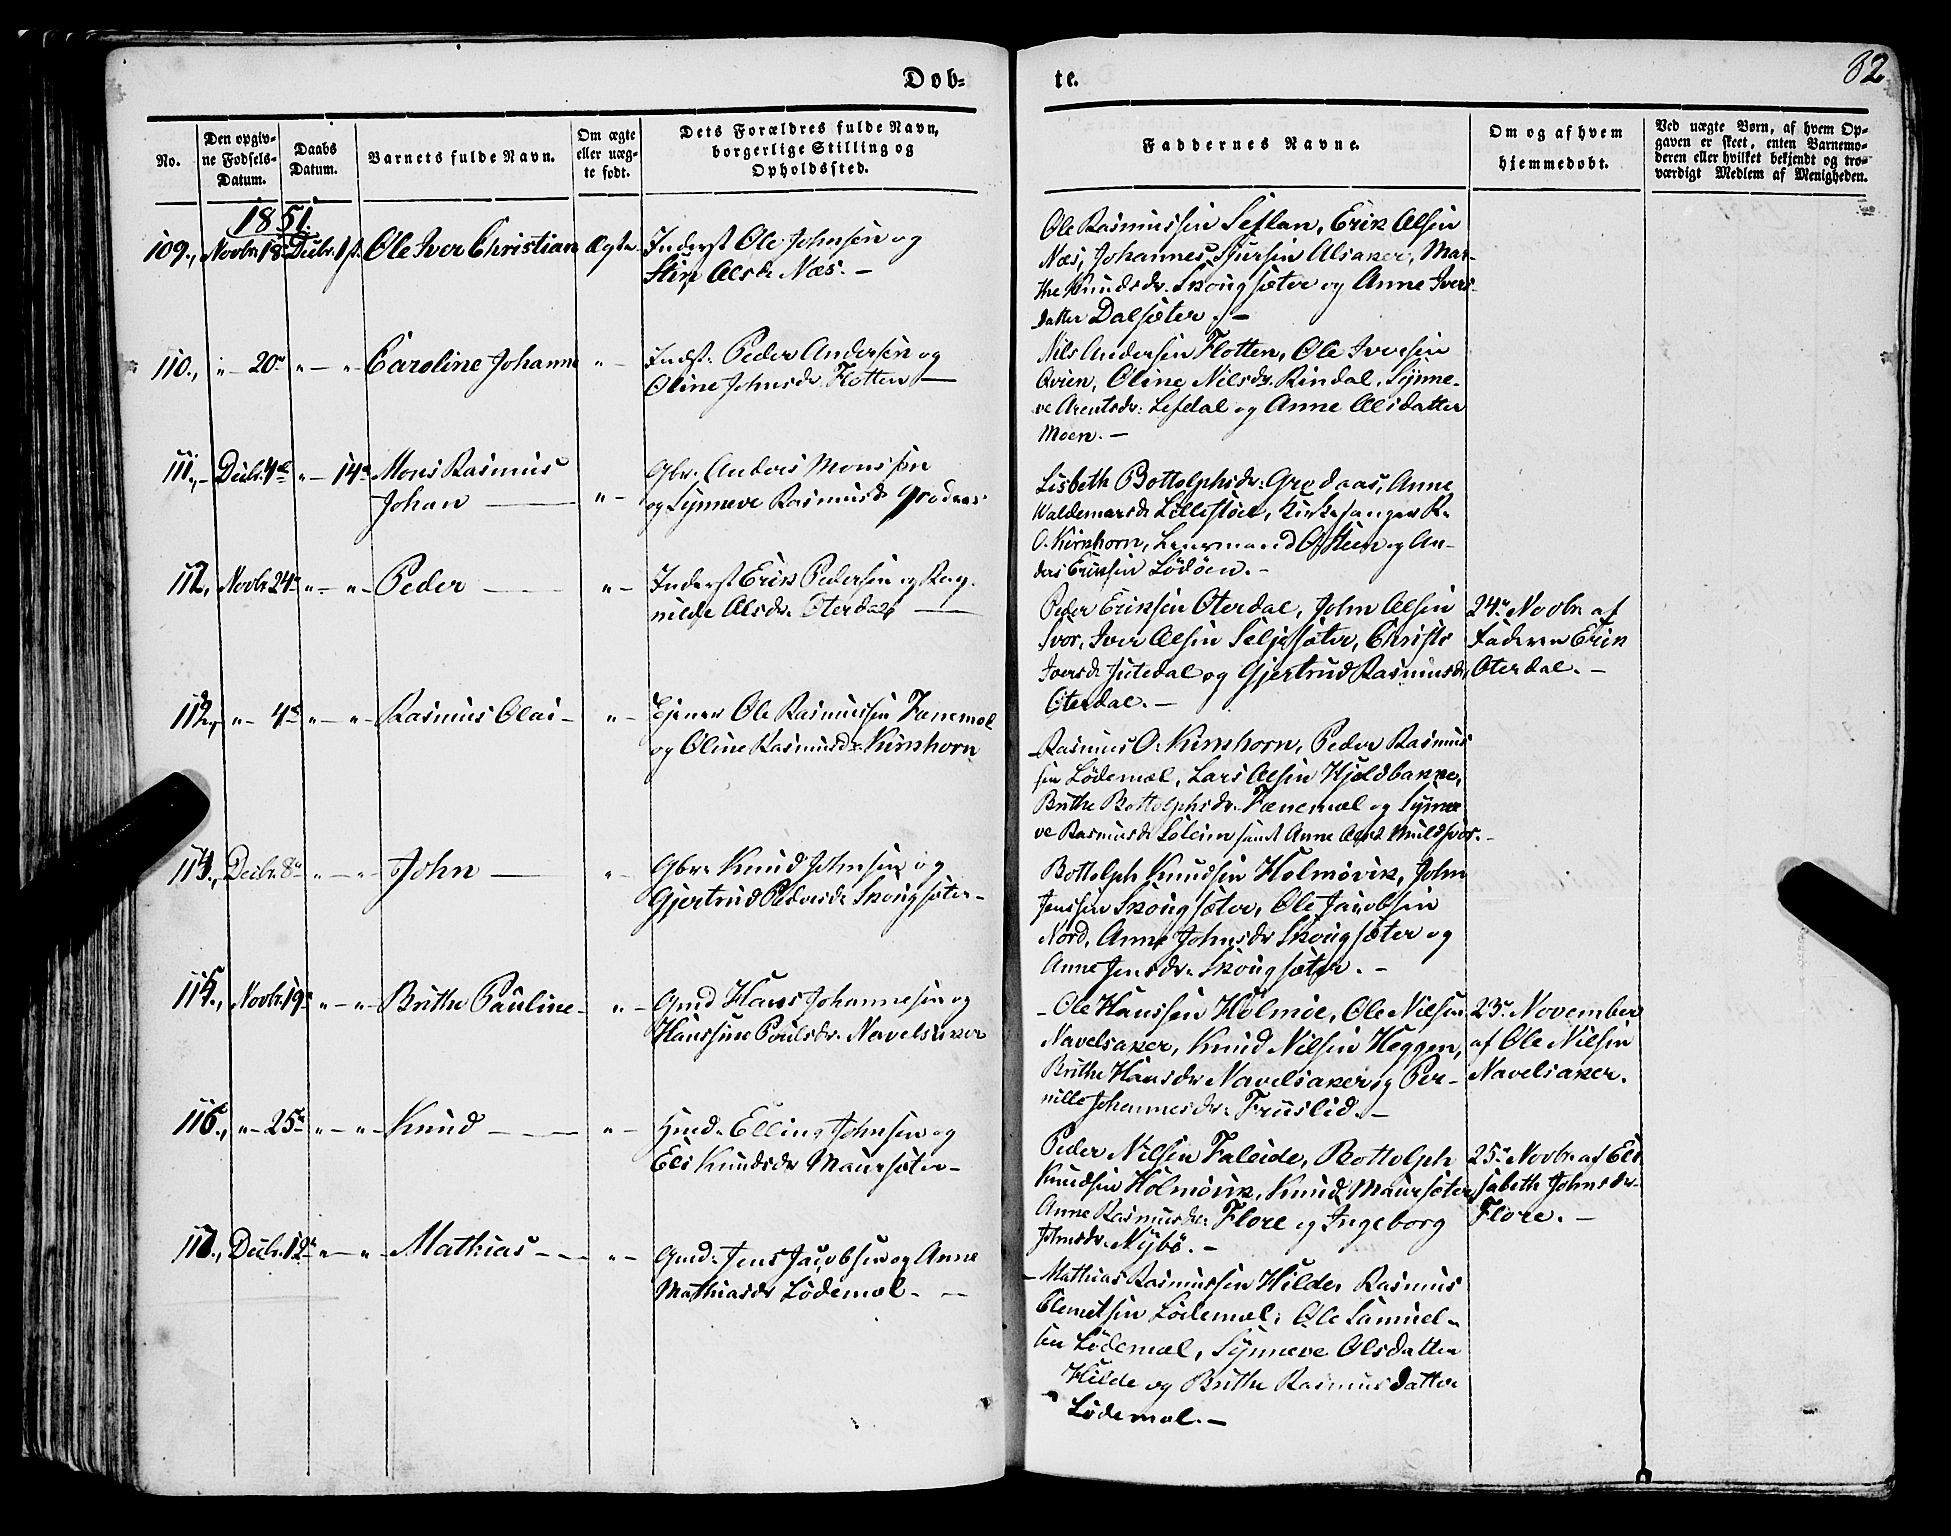 Døb-
te.
82
No.
Den opgiv-
ne Fødsels-
Datum.
Daabs
Datum.
Barnets fulde Navn.
Om ægte
eller uæg-
te født.
Dets Forældres fulde Navn,
borgerlige Stilling og
Opholdssted.
Faddernes Navne.
Om og af hvem
hjemmedøbt.
Ved uægte Børn, af hvem Op-
gaven er skeet, enten Barnemo-
deren eller hvilket bekjendt og tro-
værdigt Medlem af Menigheden.
1851.
109., Novbr. 18 Decbr. 1st. Ole Iver Christian Ægte
Inderst Ole Johnsen og
Stine Olsdr. Næs. —
Ole Rasmussen Seflan, Erik Olsen
Næs, Johannes Sjursen Alsaker, Mar-
the Knudsdr. Skougsæter og Anne Ivers-
datter Dalsæter. —
110., " — 20de " — " — Caroline Johanne " —
Indst. Peder Andersen og
Oline Johnsdr. Flotten —
Nils Andersen Flotten, Ole Iversen
Qvien, Oline Nilsdr. Rindal, Synne-
ve Arentsdr. Lefdal og Anne Olsdatter
Moen. —
111., — Decbr. 4de " — 14de Mons Rasmus
Johan — " —
Gbr. Anders Monssen
og Synneve Rasmusdr. Grodaas
Lisbeth Bottolphsdr. Grodaas, Anne
Waldemarsdr. Lillestøl, Kirkesanger R.
O. Kirkhorn, Lensmand O. Steen og An-
ders Eriksen Lødøen. —
112., Novbr. 24de " — " — Peder — " —
Inderst Erik Pedersen og Rag-
nilde Olsdr. Oterdal —
Peder Eriksen Oterdal, John Olsen
Svor, Iver Olsen Seljesæter, Christi
Iversdr. Jutedal og Gjertrud Rasmusdr.
Oterdal. —
24de Novbr. af
Faderen Erik
Oterdal. —
113., " — 4de " — " — Rasmus Olai — " —
Ejener Ole Rasmussen Fænemæl
og Oline Rasmusdr. Kirkhorn
Rasmus O. Kirkhorn, Peder Rasmus-
sen Lødemæl, Lars Olsen Hjeldbakke,
Brithe Bottolphsdr. Fænemæl og Synne-
ve Rasmusdr. Soleim samt Anne Olsdr.
114., Decbr. 8de " — " — John — " —
Gbr. Knud Johnsen og
Gjertrud Pedersdr. Skougsæter —
Bottolph Knudsen Holmøvik, John
Jenssen Skougsæter, Ole Jacobsen
Nord, Anne Johnsdr. Skougsæter og
Anne Jensdr. Skougsæter. —
115., Novbr. 19de " — " — Brithe Pauline — " —
Gmd Hans Johannesen og
Hanssine Poulsdr. Navelsaker
Ole Hanssen Holmøe, Ole Nilsen
Navelsaker, Knud Nilsen Heggen,
Brithe Hansdr. Navelsaker og Per-
nille Johannesdr. Fruslid. —
23de November
af Ole Nilsen
Navelsaker.
116., " — 25de " — " — Knud — " —
Hmd. Elling Johnsen og
Eli Knudsdr. Maursæter —
Peder Nilsen Faleide, Bottolph
Knudsen Holmøvik, Knud Maursæter,
Anne Rasmusdr. Flore og Ingeborg
Johnsdr. Nybø. —
25de Novbr. af Eli-
sabeth Johnsdr.
Flore. —
117., Decbr. 12te " — " — Mathias — " —
Gmd. Jens Jacobsen og Anne
Mathiasdr. Lødemæl. —
Mathias Rasmussen Hilde, Rasmus
Clemetsen Lødemæl, Ole Samuel-
sen Lødemæl, Synneve Olsdatter
Hilde og Brithe Rasmusdatter
Lødemæl. —